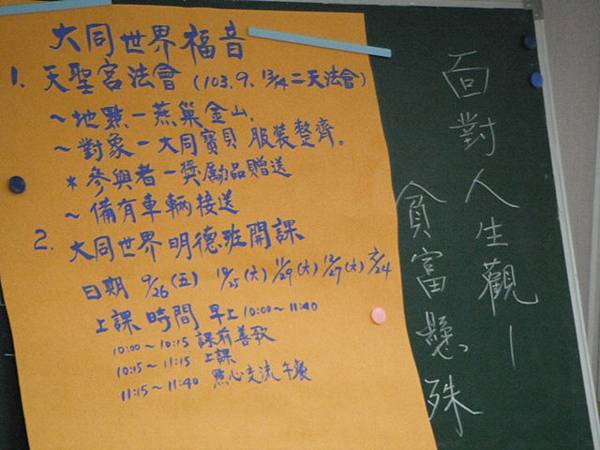 大同世界福音
1. 天聖宮法會 (103.9.13/14二天法會)
~地點一燕巢金山.
~對象一大同寶貝 服裝整齊.
*參與者一獎勵品贈送
~備有車輛接送
2. 大同世界 明德班開課
日期 9/26(五) 10/25(六) 11/29(六) 12/27(六) 1/24
上課時間 早上10:00~11:40
10:00~10:15 課前善歌
10:15~11:15 上課
11:15~11:40 點心交流 午餐
面對人生觀—
貧富懸殊